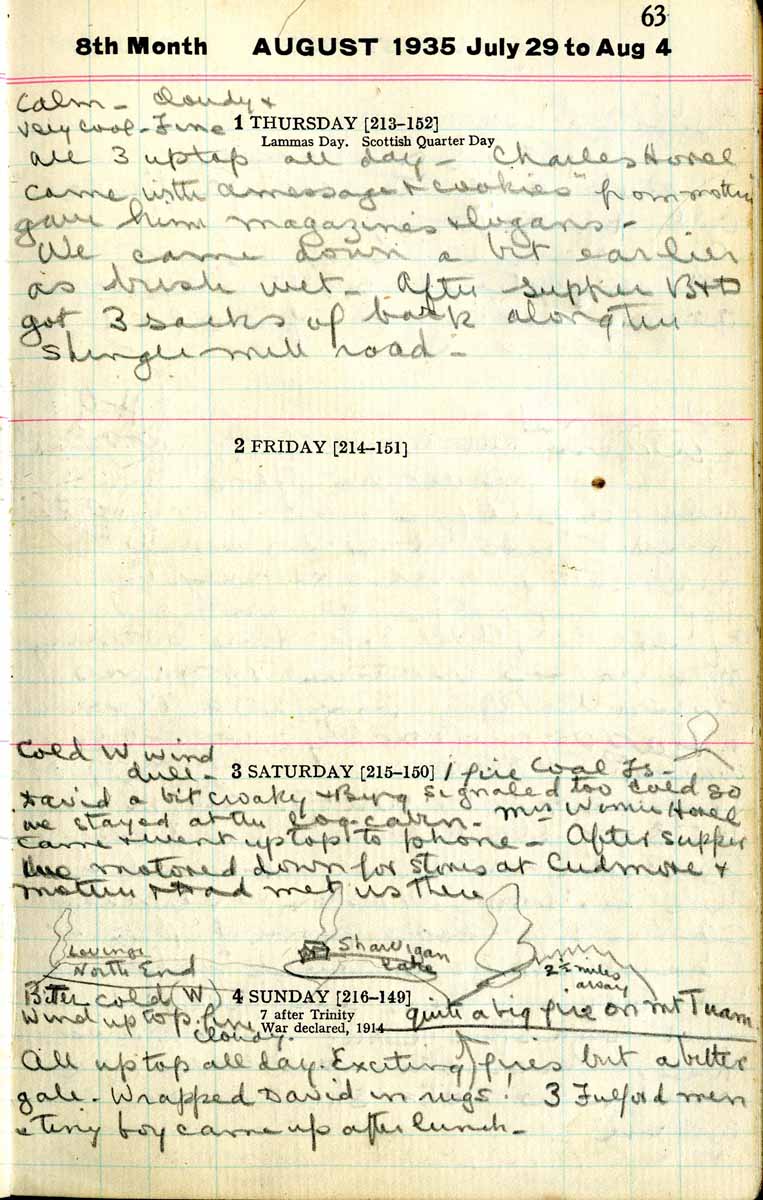 63
8th Month AUGUST 1935 July 29 to Aug 4
Calm - cloudy &
very cool - Fine 1 THURSDAY [213–152]
Lammas Day. Scottish Quarter Day
All 3 uptop all day - Charles Hovel
came with a message & "cookies" from mother
gave him magazines & logans -
We came down a bit earlier
as brush wet - After supper B & D
got 3 sacks of bark along the
shingle mill road -
2 FRIDAY [214–151]
Cold W wind
dull - 3 SATURDAY [215–150] 1 fire Coal Is -
David a bit croaky & Byng signaled too cold so
we stayed at the Log-cabin - Mrs Winnie Hovel
came & went uptop to phone - After supper
we motored down for stores at Cudmore &
mother & Dad met us there
Levings
North End
Shawnigan
Lake
2½ miles
away
Bitter cold (W)
Wind uptop. fine
cloudy.
4 SUNDAY [216–149]
7 after Trinity
War declared, 1914
quite a big fire on Mt Tuam
All uptop all day. Exciting fires but a bitter
gale - Wrapped David in rugs! 3 Fulford men
& tiny boy came up after lunch -